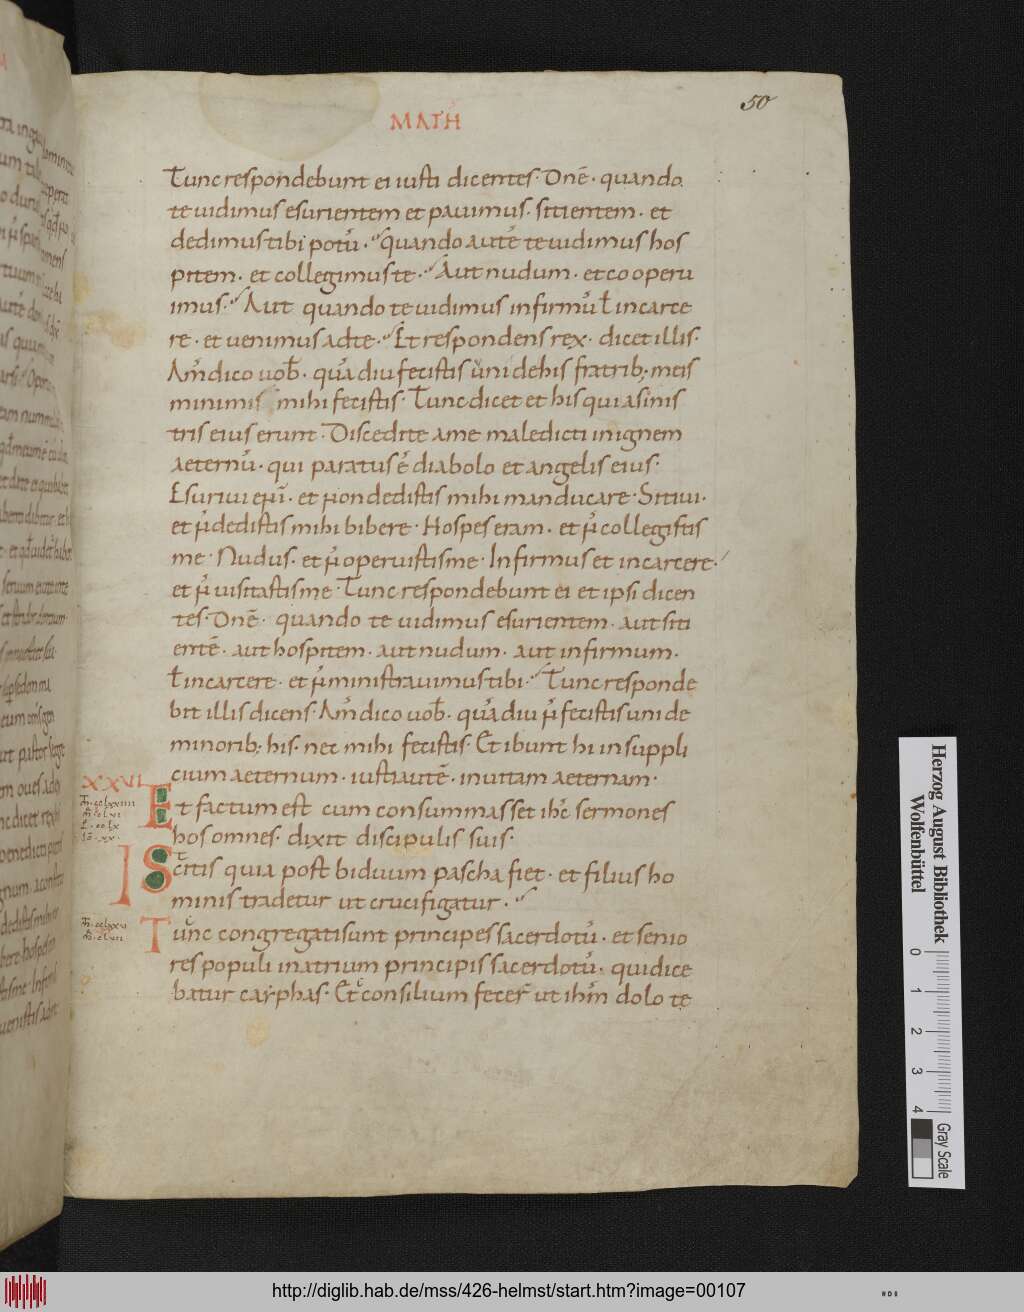 50
MATH
Tunc respondebunt ei iusti dicentes· Dnē· quando
te uidimus esurientem et pauimus· sitientem· et
dedimus tibi potū· quando autē te uidimus hos
pitem· et collegimus te· Aut nudum· et co operu
imus· Aut quando te uidimus infirmū ł in carce
re· et uenimus ad te· Et respondens rex· dicet illis·
Am̄ dico uob̄· quādiu fecistis uni de his fratrib; meis
minimis mihi fecistis· Tunc dicet et his qui a sinis
tris eius erunt· Discedite a me maledicti in ignem
aeternū· qui paratus ē diabolo et angelis eius·
Esuriui eni̅· et non dedistis mihi manducare· Sitiui·
et n̄ dedistis mihi bibere· Hospes eram· et n̄ collegistis
me· Nudus· et n̄ operuistis me· Infirmus et in carcere·
et n̄ uisitastis me· Tunc respondebunt ei et ipsi dicen
tes· Dnē· quando te uidimus esurientem· aut siti
entē· aut hospitem· aut nudum· aut infirmum·
ł in carcere· et n̄ ministrauimus tibi· Tunc responde
bit illis dicens· Am̄ dico uob̄· quādiu n̄ fecistis uni de
minorib; his· nec mihi fecistis· Et ibunt hi in suppli
cium aeternum· iusti autē· in uitam aeternam·
XXVI
Et factum est cum consummasset ihc̄ sermones
hos omnes· dixit discipulis suis·
Scitis quia post biduum pascha fiet· et filius ho
minis tradetur ut crucifigatur·
Tunc congregati sunt principes sacerdotū· et senio
res populi in atrium principis sacerdotū· qui dice
batur cayphas· Et consilium fecer̄ ut ihm̄ dolo te
Herzog August Bibliothek
Wolfenbüttel
0 1 2 3 4
Gray Scale
http://diglib.hab.de/mss/426-helmst/start.htm?image=00107